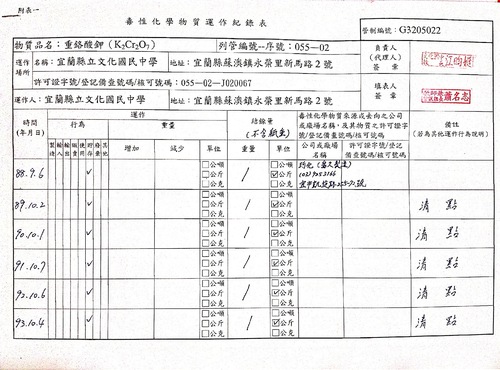 附表一
毒性化學物質運作紀錄表
管制編號：G3205022
物質品名：重鉻酸鉀（K2Cr2O7）
列管編號--序號：055—02
負責人
（代理人）
簽章
運作場所
名稱：宜蘭縣立文化國民中學
地址：宜蘭縣蘇澳鎮永榮里新馬路2號
許可證字號/登記備查號碼/核可號碼：055—02—J020067
填表人
簽章
運作人：宜蘭縣立文化國民中學
地址：宜蘭縣蘇澳鎮永榮里新馬路2號
時間
（年月日）
運作
行為
重量
製造 輸入 輸出 販賣 使用 貯存 廢棄 其他
增加 減少 單位
結餘量
（不含瓶重）
重量 單位
毒性化學物質來源或去向之公司或廠場名稱，及其物質之許可證字號/登記備查號碼/核可號碼
公司或廠場名稱
許可證字號/登記備查號碼/核可號碼
備註
88.9.6 ✓ □公噸 □公斤 □公克 / □公噸 ☑公斤 □公克
89.10.2 ✓ □公噸 □公斤 □公克 / □公噸 ☑公斤 □公克 清點
90.10.1 ✓ □公噸 □公斤 □公克 / □公噸 ☑公斤 □公克 清點
91.10.7 ✓ □公噸 □公斤 □公克 / □公噸 ☑公斤 □公克 清點
92.10.6 ✓ □公噸 □公斤 □公克 / □公噸 ☑公斤 □公克 清點
93.10.4 ✓ □公噸 □公斤 □公克 / □公噸 ☑公斤 □公克 清點